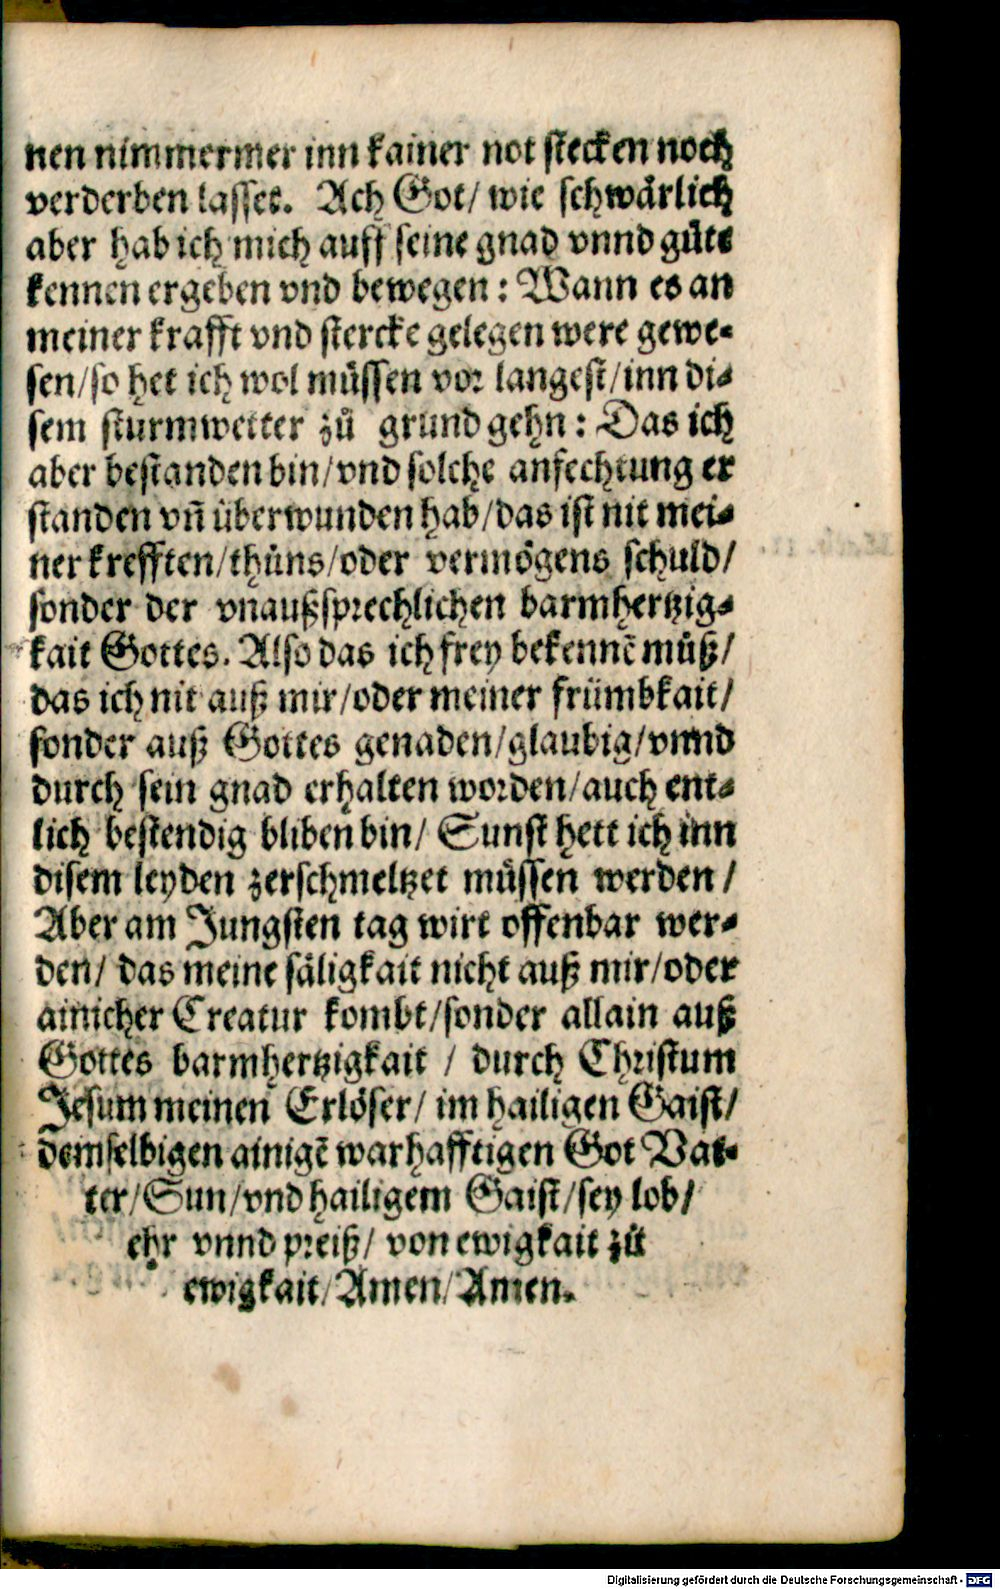 nen nimmermer inn kainer not stecken noch
verderben lasset. Ach Got/ wie schwärlich
aber hab ich mich auff seine gnad vnnd gůte
kennen ergeben vnd bewegen: Wann es an
meiner krafft vnd stercke gelegen were gewe⸗
sen/so het ich wol müssen vor langest/inn di⸗
sem sturmwetter zů grund gehn: Das ich
aber bestanden bin/vnd solche anfechtung er
standen vñ überwunden hab/das ist nit mei⸗
ner krefften/thůns/oder vermögens schuld/
sonder der vnaußsprechlichen barmhertzig⸗
kait Gottes. Also das ich frey bekennẽ můß/
das ich nit auß mir/oder meiner frümbkait/
sonder auß Gottes genaden/glaubig/vnnd
durch sein gnad erhalten worden/auch ent⸗
lich bestendig bliben bin/ Sunst hett ich inn
disem leyden zerschmeltzet müssen werden/
Aber am Jungsten tag wirt offenbar wer⸗
den/ das meine säligkait nicht auß mir/oder
ainicher Creatur kombt/sonder allain auß
Gottes barmhertzigkait / durch Christum
Jesum meinen Erlöser/ im hailigen Gaist/
demselbigen ainigẽ warhafftigen Got Vat⸗
ter/Sun/vnd hailigem Gaist/sey lob/
ehr vnnd preiß/ von ewigkait zů
ewigkait/Amen/Amen.
Digitalisierung gefördert durch die Deutsche Forschungsgemeinschaft - DFG